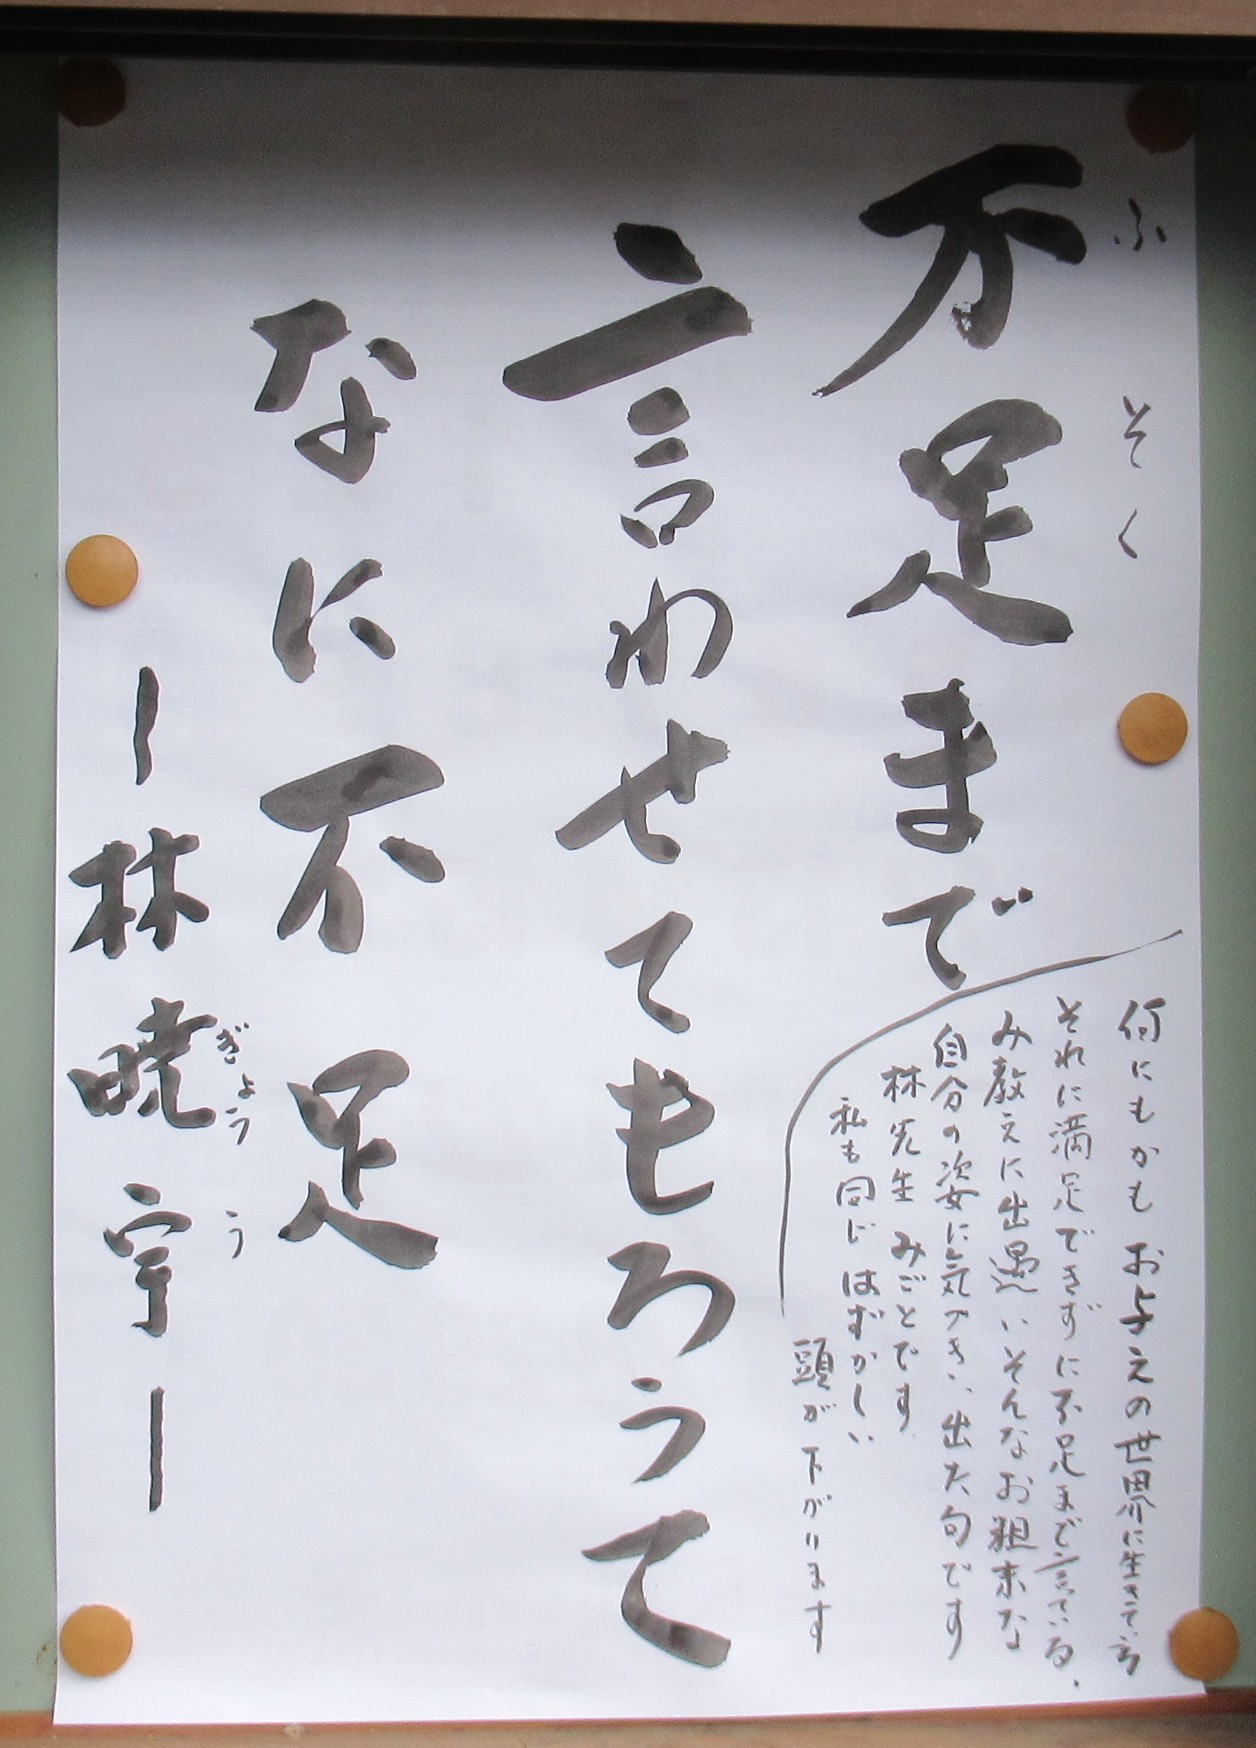 ふそく
不足まで
言わせてもろうて
なに不足
ぎょう う
―林暁宇―
何にもかも お与えの世界に生きている
それに満足できずに不足まで言ている、
み教えに出遇いそんなお粗末な
自分の姿に気づき、出た句です
林先生 みごとです
私も同じ はずかしい
頭が下がります